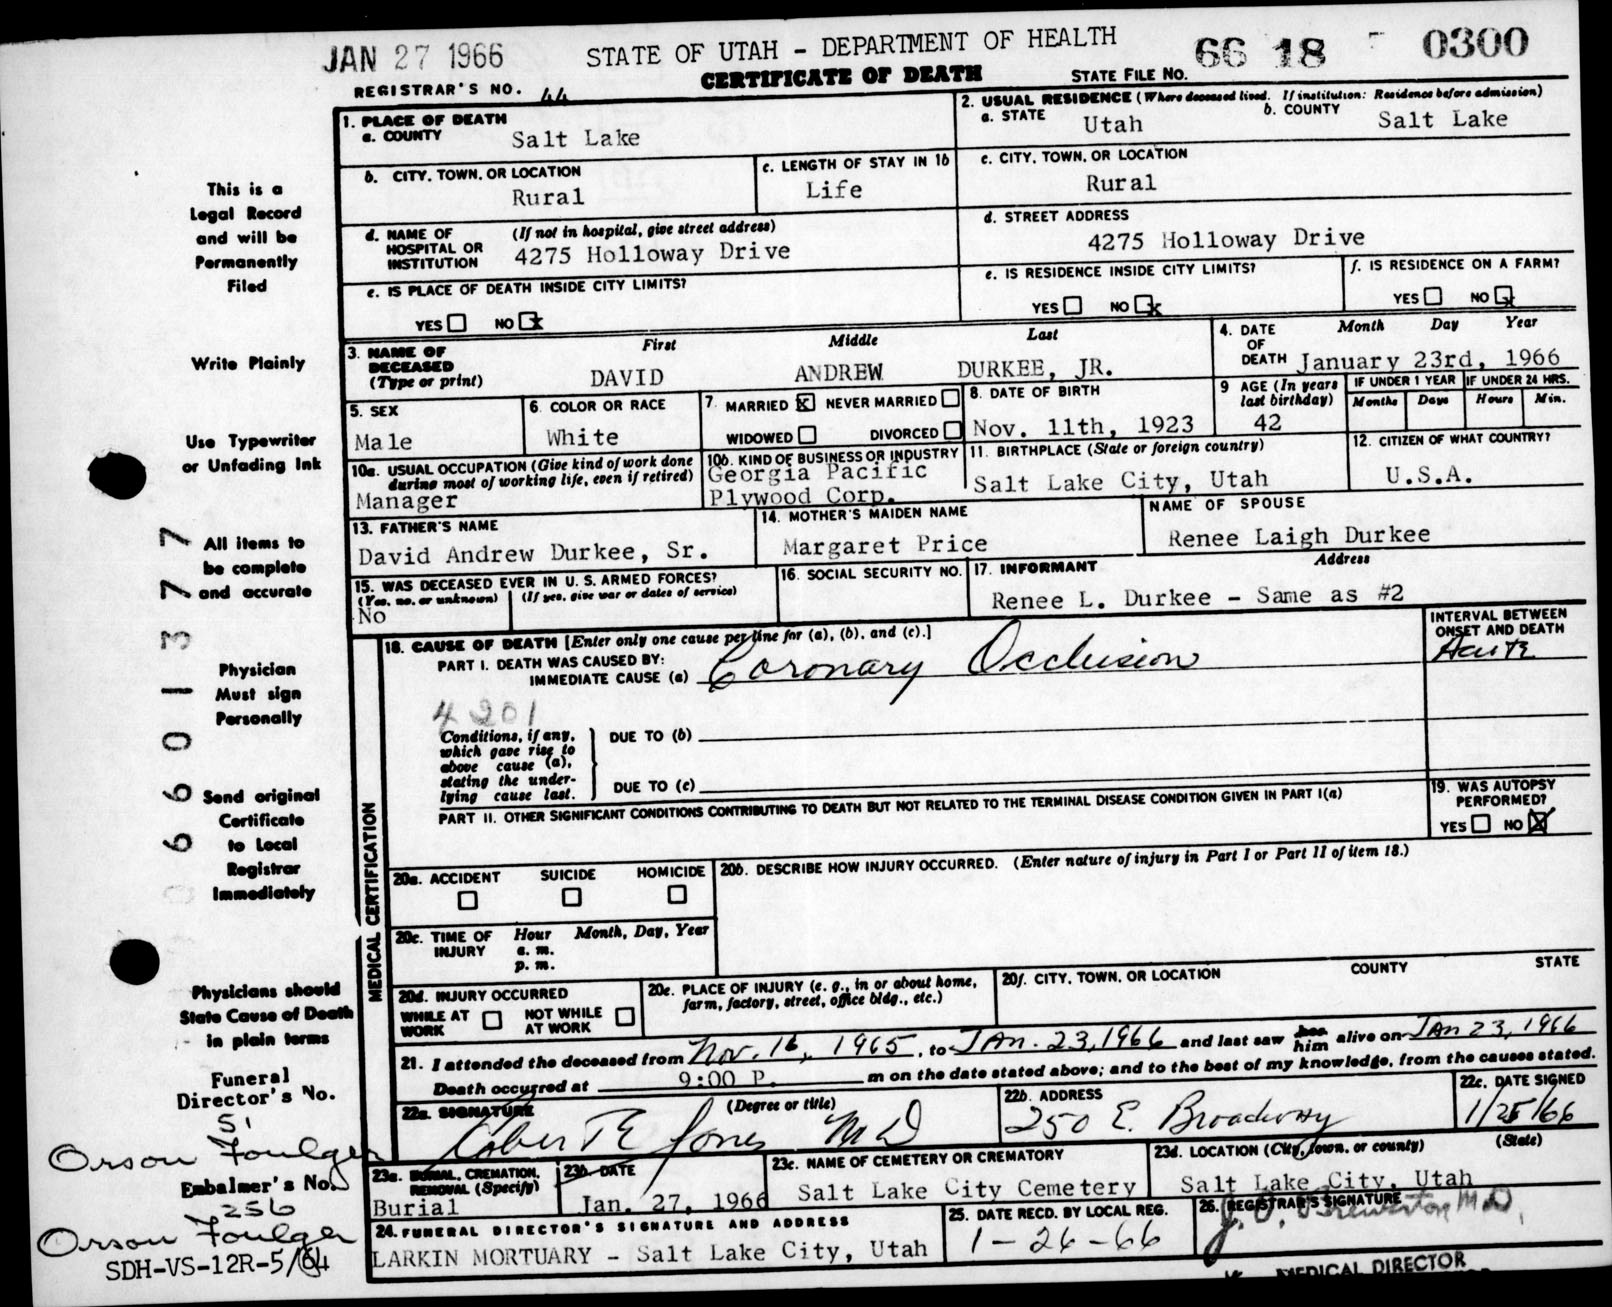 JAN 27 1966
STATE OF UTAH - DEPARTMENT OF HEALTH
66 18 - 0300
CERTIFICATE OF DEATH
STATE FILE NO.
REGISTRAR'S NO. 44
1. PLACE OF DEATH
a. COUNTY Salt Lake
2. USUAL RESIDENCE (Where deceased lived. If institution: Residence before admission)
a. STATE Utah b. COUNTY Salt Lake
b. CITY, TOWN, OR LOCATION
Rural
c. LENGTH OF STAY IN 1b
Life
c. CITY, TOWN, OR LOCATION
Rural
d. NAME OF HOSPITAL OR INSTITUTION (If not in hospital, give street address)
4275 Holloway Drive
d. STREET ADDRESS
4275 Holloway Drive
e. IS PLACE OF DEATH INSIDE CITY LIMITS?
YES NO x
e. IS RESIDENCE INSIDE CITY LIMITS?
YES NO x
f. IS RESIDENCE ON A FARM?
YES NO x
3. NAME OF DECEASED (Type or print)
First Middle Last
DAVID ANDREW DURKEE, JR.
4. DATE OF DEATH Month Day Year
January 23rd, 1966
5. SEX
Male
6. COLOR OR RACE
White
7. MARRIED x NEVER MARRIED
WIDOWED DIVORCED
8. DATE OF BIRTH
Nov. 11th, 1923
9 AGE (In years last birthday)
42
IF UNDER 1 YEAR IF UNDER 24 HRS.
Months Days Hours Min.
10a. USUAL OCCUPATION (Give kind of work done during most of working life, even if retired)
Manager
10b. KIND OF BUSINESS OR INDUSTRY
Georgia Pacific
Plywood Corp.
11. BIRTHPLACE (State or foreign country)
Salt Lake City, Utah
12. CITIZEN OF WHAT COUNTRY?
U.S.A.
13. FATHER'S NAME
David Andrew Durkee, Sr.
14. MOTHER'S MAIDEN NAME
Margaret Price
NAME OF SPOUSE
Renee Laigh Durkee
15. WAS DECEASED EVER IN U. S. ARMED FORCES?
(Yes, no, or unknown) (If yes, give war or dates of service)
No
16. SOCIAL SECURITY NO.
17. INFORMANT Address
Renee L. Durkee - Same as #2
MEDICAL CERTIFICATION
18. CAUSE OF DEATH [Enter only one cause per line for (a), (b), and (c).]
INTERVAL BETWEEN ONSET AND DEATH
PART I. DEATH WAS CAUSED BY:
IMMEDIATE CAUSE (a) Coronary Occlusion Acute
4201
Conditions, if any, which gave rise to above cause (a), stating the underlying cause last.
DUE TO (b)
DUE TO (c)
PART II. OTHER SIGNIFICANT CONDITIONS CONTRIBUTING TO DEATH BUT NOT RELATED TO THE TERMINAL DISEASE CONDITION GIVEN IN PART I(a)
19. WAS AUTOPSY PERFORMED?
YES NO X
20a. ACCIDENT SUICIDE HOMICIDE
20b. DESCRIBE HOW INJURY OCCURRED. (Enter nature of injury in Part I or Part II of item 18.)
20c. TIME OF INJURY Hour a. m. p. m. Month, Day, Year
20d. INJURY OCCURRED
WHILE AT WORK NOT WHILE AT WORK
20e. PLACE OF INJURY (e. g., in or about home, farm, factory, street, office bldg., etc.)
20f. CITY, TOWN, OR LOCATION COUNTY STATE
21. I attended the deceased from Nov. 16, 1965, to JAN. 23, 1966 and last saw her him alive on JAN 23, 1966
Death occurred at 9:00 P. m on the date stated above; and to the best of my knowledge, from the causes stated.
22a. SIGNATURE (Degree or title)
Jones MD
22b. ADDRESS
250 E. Broadway
22c. DATE SIGNED
1/25/66
23a. BURIAL, CREMATION, REMOVAL (Specify)
Burial
23b. DATE
Jan. 27, 1966
23c. NAME OF CEMETERY OR CREMATORY
Salt Lake City Cemetery
23d. LOCATION (City, town, or county) (State)
Salt Lake City, Utah
24. FUNERAL DIRECTOR'S SIGNATURE AND ADDRESS
LARKIN MORTUARY - Salt Lake City, Utah
25. DATE RECD. BY LOCAL REG.
1-26-66
26. REGISTRAR'S SIGNATURE
MEDICAL DIRECTOR
This is a
Legal Record
and will be
Permanently
Filed
Write Plainly
Use Typewriter
or Unfading Ink
All items to
be complete
and accurate
Physician
Must sign
Personally
Send original
Certificate
to Local
Registrar
Immediately
Physicians should
State Cause of Death
in plain terms
Funeral
Director's No.
51
Orson Foulger
Embalmer's No.
256
Orson Foulger
SDH-VS-12R-5/64
0 6 6 0 1 3 7 7